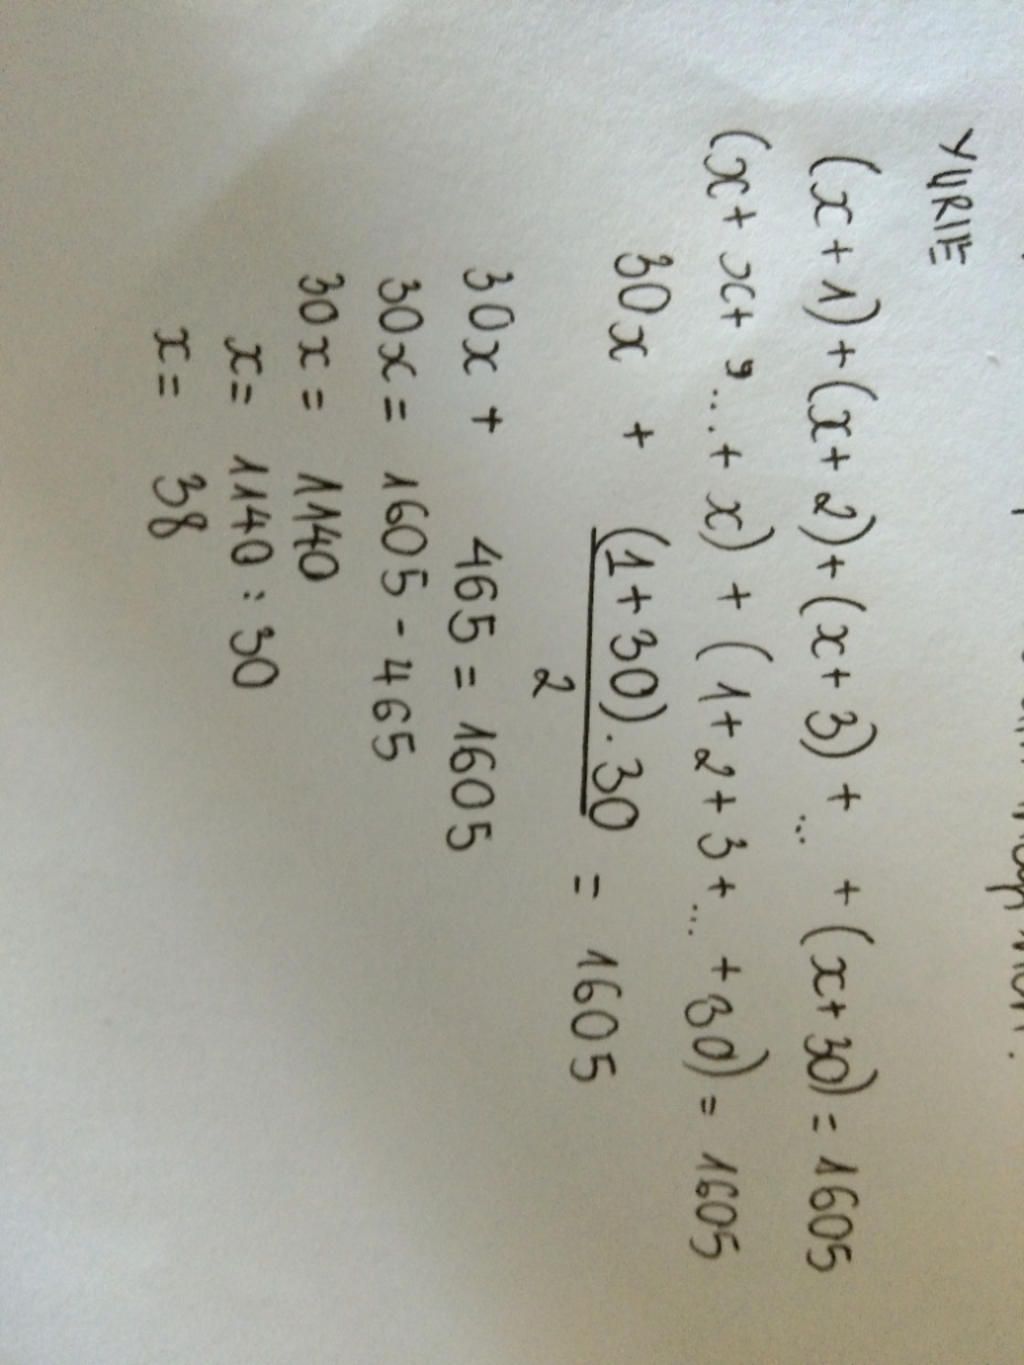 YURIE
(x+1)+(x+2)+(x+3)+...+(x+30)=1605
(x+x+,...+x)+(1+2+3+...+30)=1605
30x + (1+30).30 = 1605
2
30x + 465 = 1605
30x = 1605 - 465
30x = 1140
x = 1140 : 30
x = 38